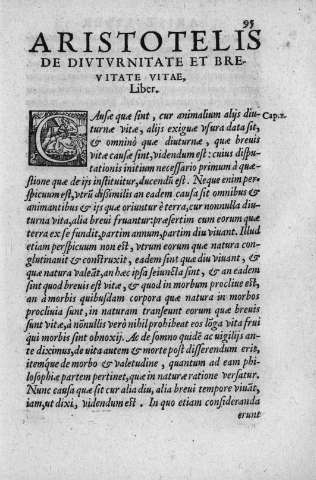 95
ARISTOTELIS
DE DIVTVRNITATE ET BRE-
VITATE VITAE,
Liber.
CAusæ quæ sint, cur animalium alijs diu- Cap. 1.
turnæ vitæ, alijs exiguæ vsura data sit,
& omninò quæ diuturnæ, quæ breuis
vitæ causæ sint, videndum est: cuius dispu-
tationis initium necessario primum à quæ-
stione quæ de ijs instituitur, ducendū est. Neque enim per-
spicuum est, vtrū dissimilis an eadem causa sit omnibus &
animantibus & ijs quæ oriuntur è terra, cur nonnulla diu-
turna vita, alia breui fruantur: præsertim cum eorum quæ
terra ex se fundit, partim annum, partim diu viuant. Illud
etiam perspicuum non est, vtrum eorum quæ natura con-
glutinauit & construxit, eadem sint quæ diu viuant, &
quæ natura valeāt, an hæc ipsa seiuncta sint, & an eadem
sint quod breuis est vitæ, & quod in morbum procliue est,
an à morbis quibusdam corpora quæ natura in morbos
procliuia sunt, in naturam transeunt eorum quæ breuis
sunt vitæ, à nōnullis verò nihil prohibeat eos lōga vita frui
qui morbis sint obnoxij. Ac de somno quidē ac uigilijs an-
te diximus, de uita autem & morte post disserendum erit,
itemq́ue de morbo & valetudine, quantum ad eam phi-
losophiæ partem pertinet, quæ in naturæ ratione versatur.
Nunc causa quæ sit cur alia diu, alia breui tempore viuāt,
iam, ut dixi, videndum est. In quo etiam consideranda
erunt